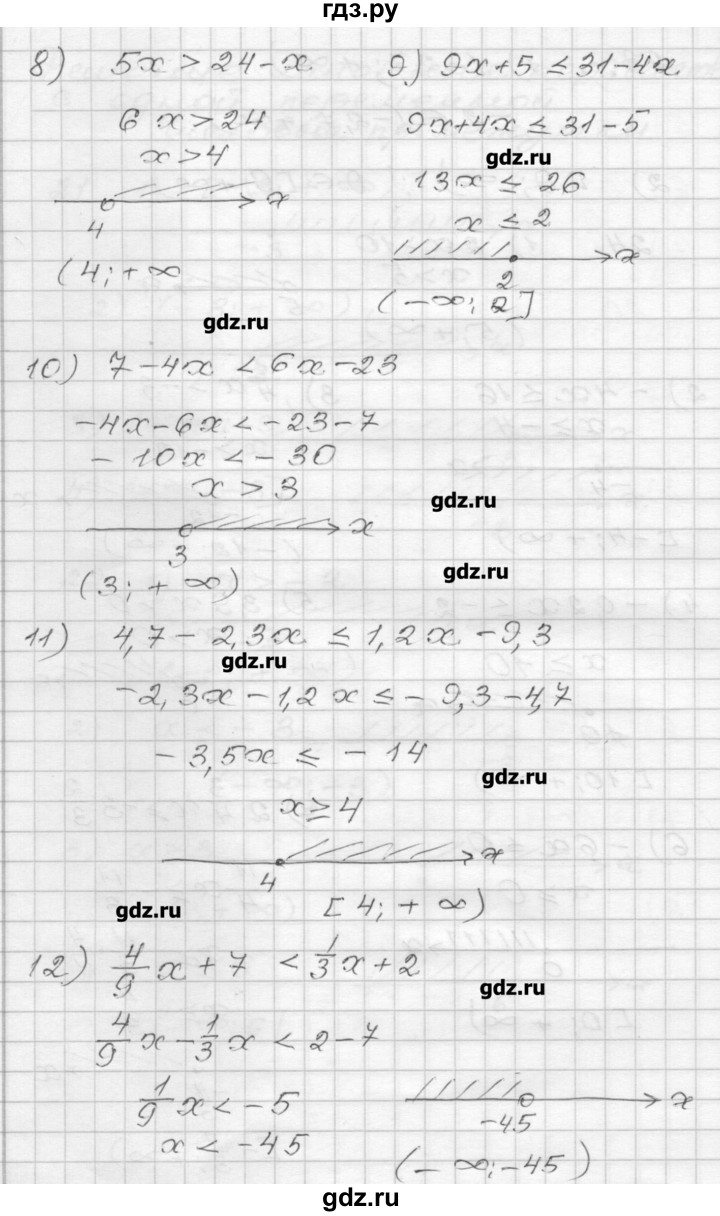 гдз.ру
8) 5x > 24 - x
6x > 24
x > 4
x
4
(4; + ∞
9) 9x + 5 ≤ 31 - 4x
9x + 4x ≤ 31 - 5
gdz.ru
13x ≤ 26
x ≤ 2
x
2
(-∞; 2]
gdz.ru
10) 7 - 4x < 6x - 23
-4x - 6x < -23 - 7
- 10x < - 30
x > 3
gdz.ru
x
3
gdz.ru
(3; + ∞)
11) 4,7 - 2,3x ≤ 1,2x - 9,3
gdz.ru
-2,3x - 1,2x ≤ - 9,3 - 4,7
- 3,5x ≤ - 14
gdz.ru
x ≥ 4
x
4
gdz.ru
[4; + ∞)
12) 4/9 x + 7 < 1/3 x + 2
gdz.ru
4/9 x - 1/3 x < 2 - 7
1/9 x < -5
x < -45
x
-45
(- ∞; -45)
gdz.ru